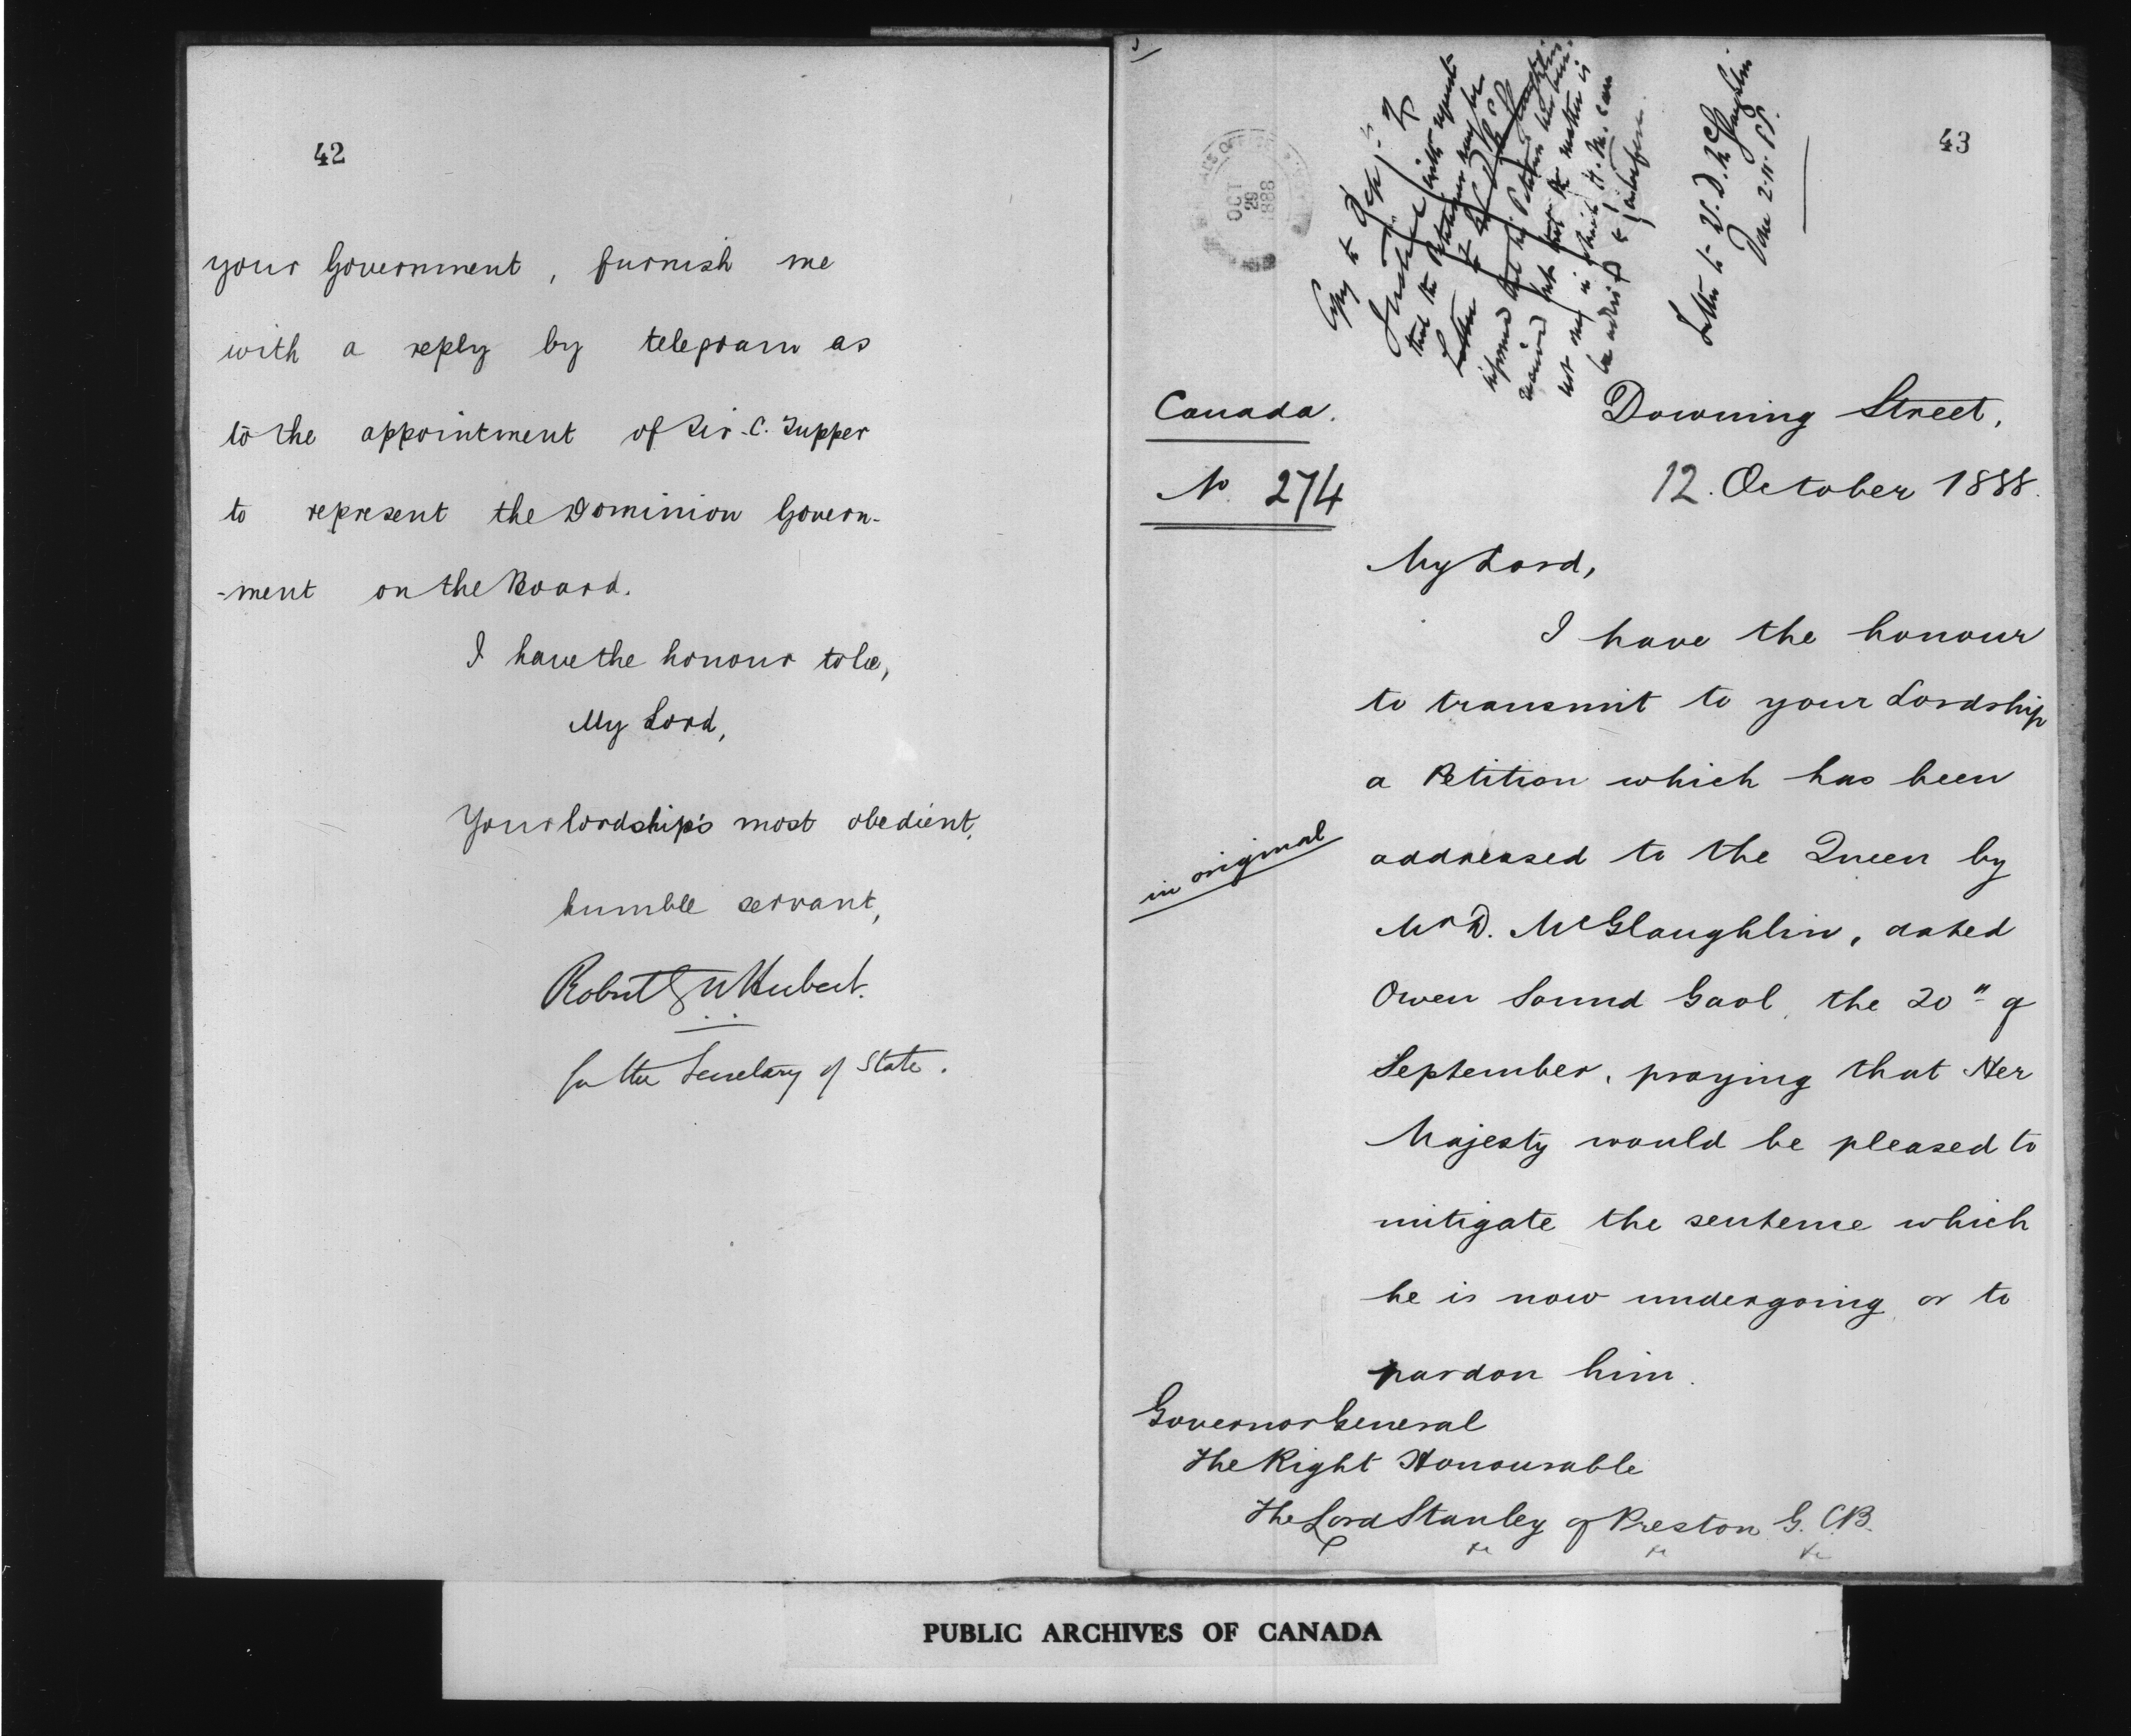 42
your Government, furnish me
with a reply by telegram as
to the appointment of Sir C. Tupper
to represent the Dominion Govern-
-ment on the Board.
I have the honour to be,
My Lord,
Your lordship's most obedient,
humble servant,
Robert G W Herbert.
for the Secretary of State.
43
OCT
29
1888
Copy to Dept. of
Justice with request
that the Petitioner may be
informed that his Petition has been
received but that the matter is
not one in which H. M. can
be advised to interfere.
Letter to W. D. McGlaughlin
Done 2.11.88.
Canada.
No 274
Downing Street,
12. October 1888.
My Lord,
I have the honour
to transmit to your Lordship
a Petition which has been
in original
addressed to the Queen by
Mr D. McGlaughlin, dated
Owen Sound Gaol, the 20" of
September, praying that Her
Majesty would be pleased to
mitigate the sentence which
he is now undergoing, or to
pardon him.
Governor General
The Right Honourable
The Lord Stanley of Preston G.C.B.
&c &c &c
PUBLIC ARCHIVES OF CANADA